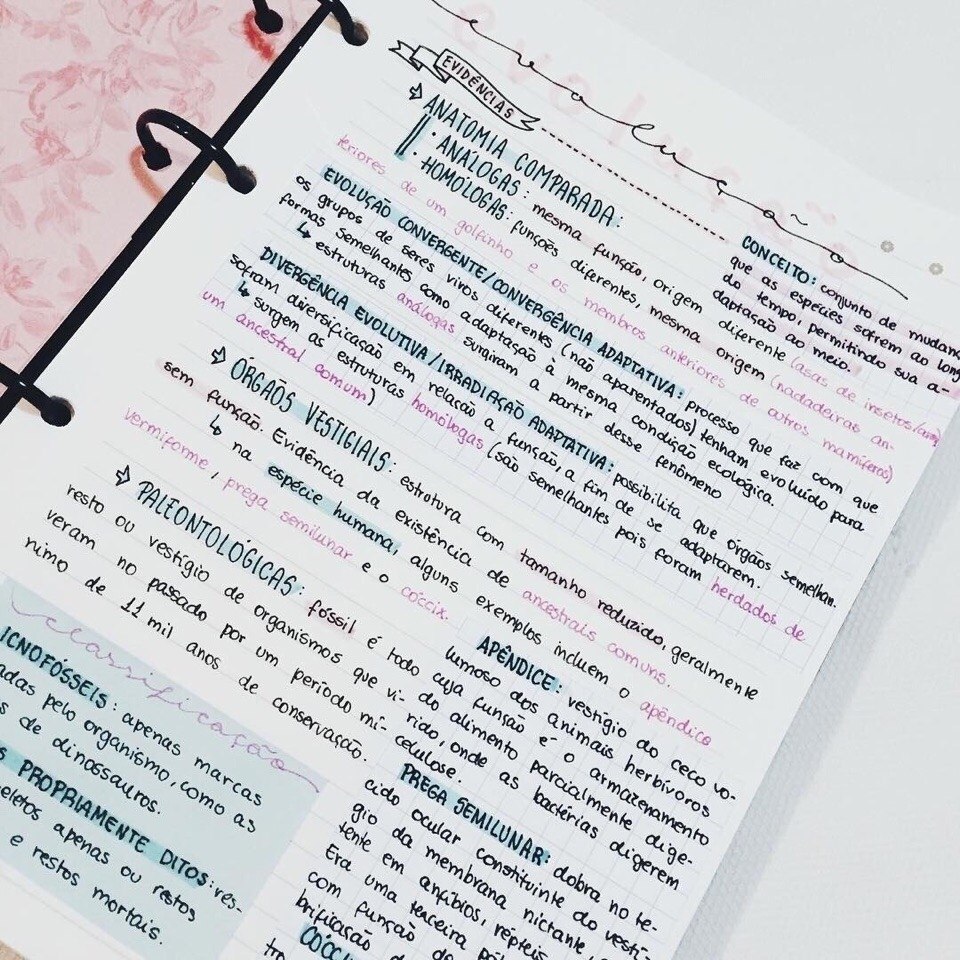 evolução
evolução
EVIDÊNCIAS
CONCEITO: conjunto de mudan
que as espécies sofrem ao long
do tempo, permitindo sua a-
daptação ao meio.
ANATOMIA COMPARADA:
· ANÁLOGAS: mesma função, origem diferente (asas de insetos/
· HOMÓLOGAS: funções diferentes, mesma origem (nadadeiras an-
teriores de um golfinho e os membros anteriores de outros mamíferos)
EVOLUÇÃO CONVERGENTE/CONVERGÊNCIA ADAPTATIVA: processo que faz com que
os grupos de seres vivos diferentes (não aparentados) tenham evoluído para
formas semelhantes como adaptação à mesma condição ecológica.
↳ estruturas análogas surgiram a partir desse fenômeno
DIVERGÊNCIA EVOLUTIVA/IRRADIAÇÃO ADAPTATIVA: possibilita que órgãos semelhan.
sofram diversificação em relação a função, a fim de se adaptarem.
↳ surgem as estruturas homólogas (são semelhantes pois foram herdados de
um ancestral comum)
ÓRGÃOS VESTIGIAIS: estrutura com tamanho reduzido, geralmente
sem função. Evidência da existência de ancestrais comuns.
↳ na espécie humana, alguns exemplos incluem o apêndice
vermiforme, prega semilunar e o cóccix.
PALEONTOLÓGICAS: fóssil é todo
resto ou vestígio de organismos que vi-
veram no passado por um período mí-
nimo de 11 mil anos de conservação.
APÊNDICE: vestígio do ceco vo-
lumoso dos animais herbívoros
cuja função é o armazenamento
do alimento parcialmente dige-
rido, onde as bactérias digerem
celulose.
PREGA SEMILUNAR: dobra no te-
cido ocular constituinte do vestí-
gio da membrana nictante,
tente em anfíbios, répteis
Era uma terceira pál
com função de
brificação
CÓCCI
tro
classificação
ICNOFÓSSEIS: apenas marcas
adas pelo organismo, como as
s de dinossauros.
S PROPRIAMENTE DITOS: res-
eletos apenas ou restos
e restos mortais.